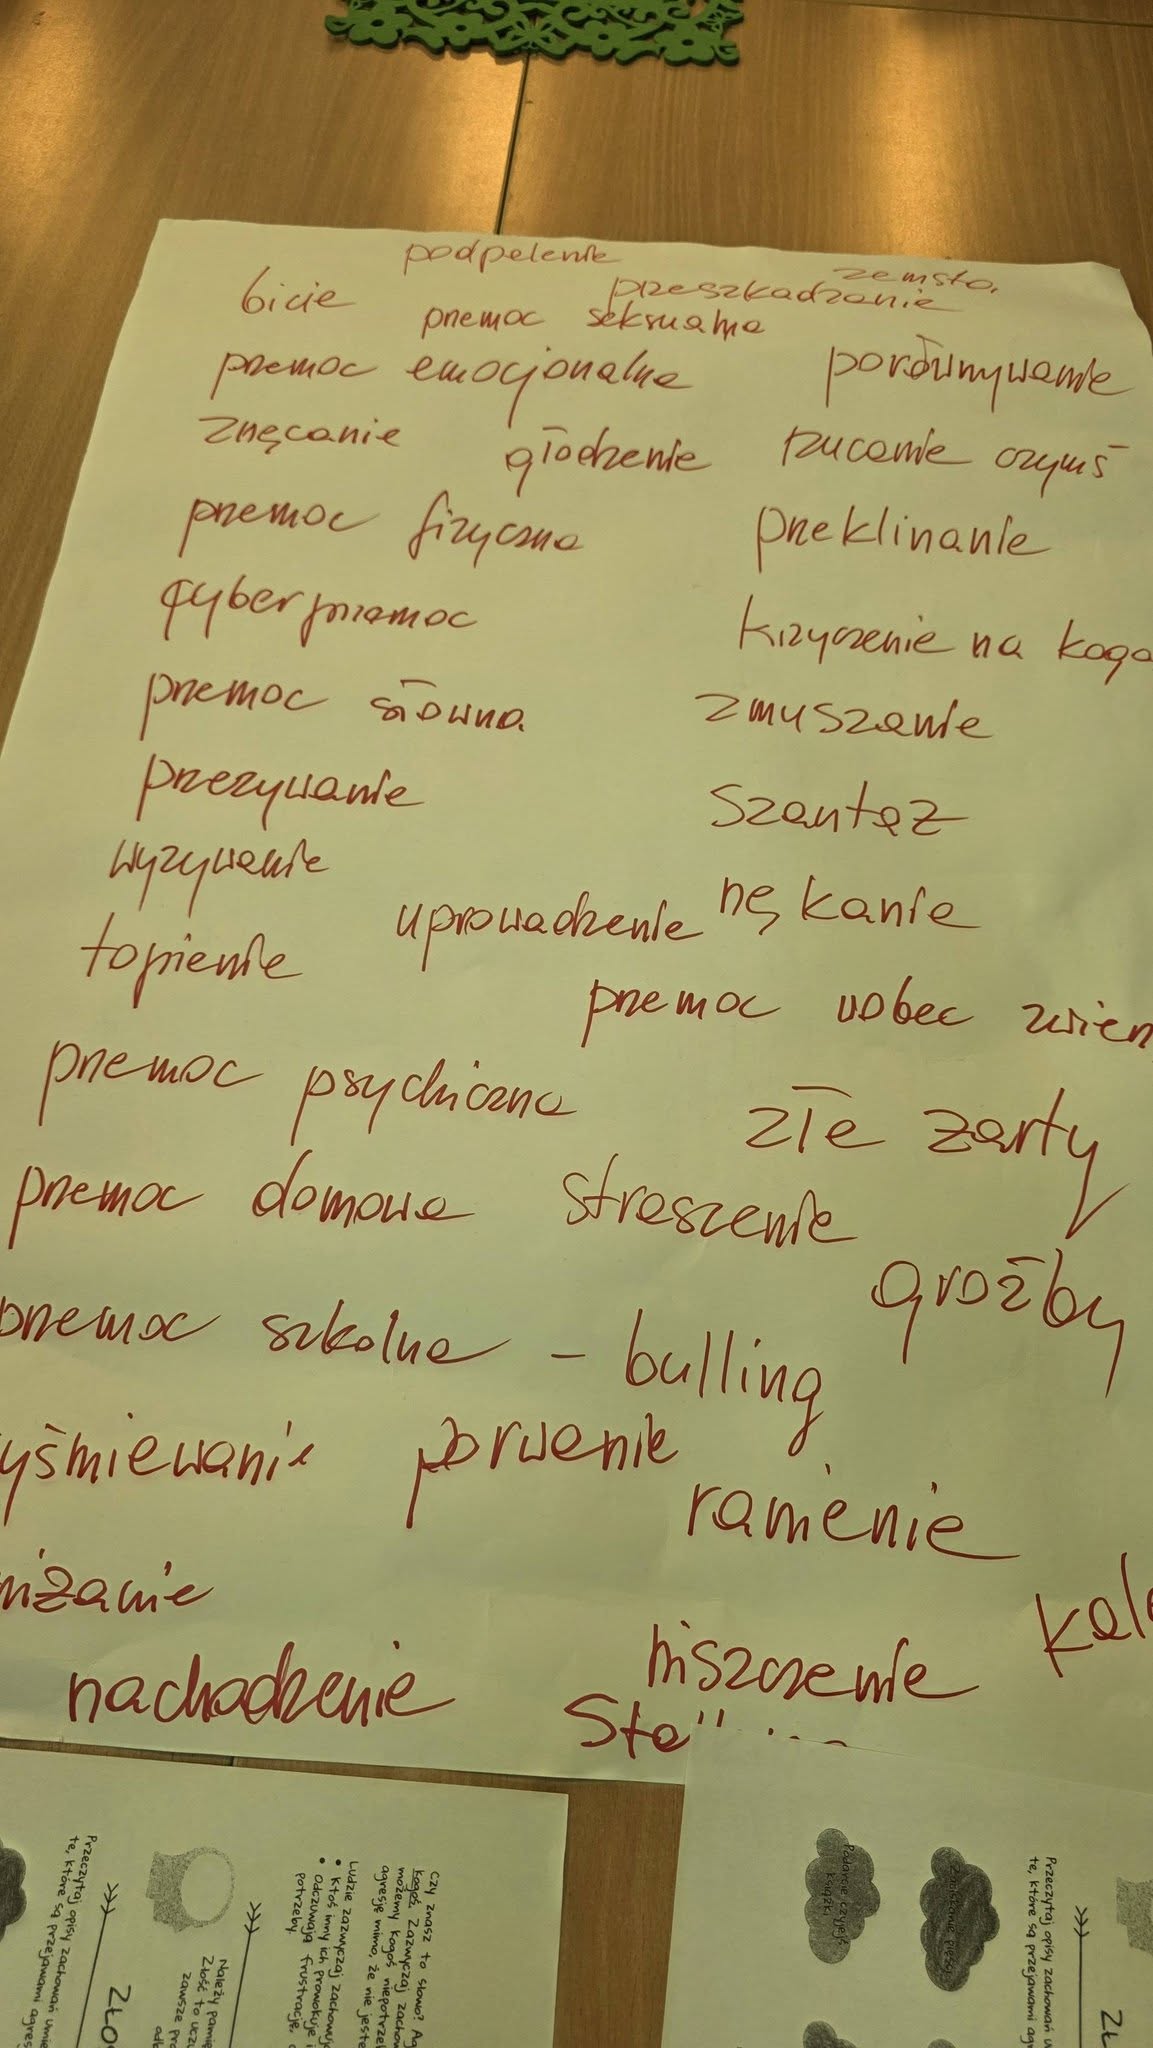 podpalenie
zemsta
bicie
przeszkadzanie
przemoc seksualna
przemoc emocjonalna
porównywanie
znęcanie
głodzenie
rzucanie czymś
przemoc fizyczna
przeklinanie
cyberprzemoc
krzyczenie na kogo
przemoc słowna
zmuszanie
przezywanie
szantaż
wyzywanie
uprowadzenie
nękanie
topienie
przemoc wobec zwierz
przemoc psychiczna
złe żarty
przemoc domowa
straszenie
groźby
przemoc szkolna - bulling
yśmiewanie
porwanie
ranienie
niżanie
kale
nachodzenie
niszczenie
Przeczytaj opisy zachowań
te, które są przejawami agres
ZŁO
Należy pamię
Złość to uczu
zawsze pro
Czy znasz to słowo? Ag
kogoś. Zazwyczaj zachow
możemy kogoś niepotrzeb
agresję mimo, że nie jeste
Ludzie zazwyczaj zachowuj
• Ktoś inny ich prowokuje i
• Odczuwają frustrację,
potrzeby.
Podarcie czyjejś
książki
Zaciskanie pięści
Przeczytaj opisy zachowań
te, które są przejawami agr
ZŁ